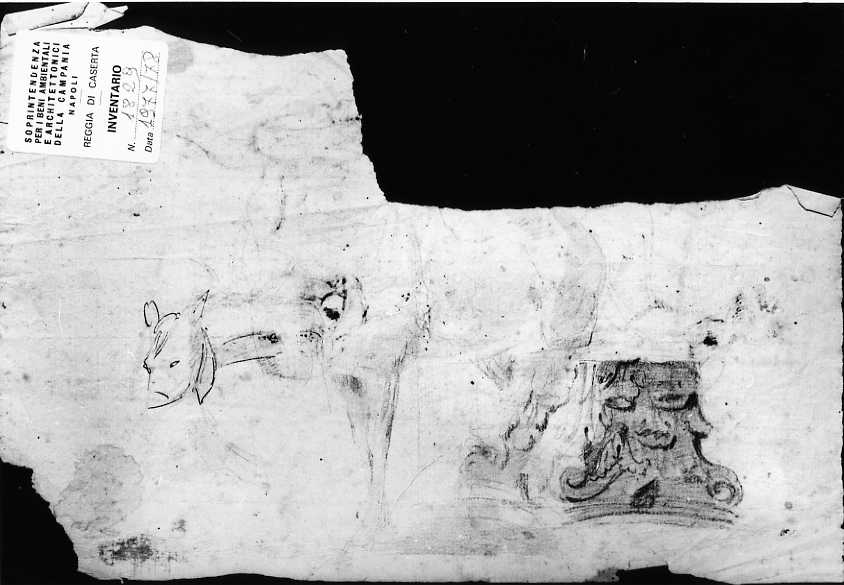 SOPRINTENDENZA
PER I BENI AMBIENTALI
E ARCHITETTONICI
DELLA CAMPANIA
NAPOLI
REGGIA DI CASERTA
INVENTARIO
N. 1829
Data 1977/78